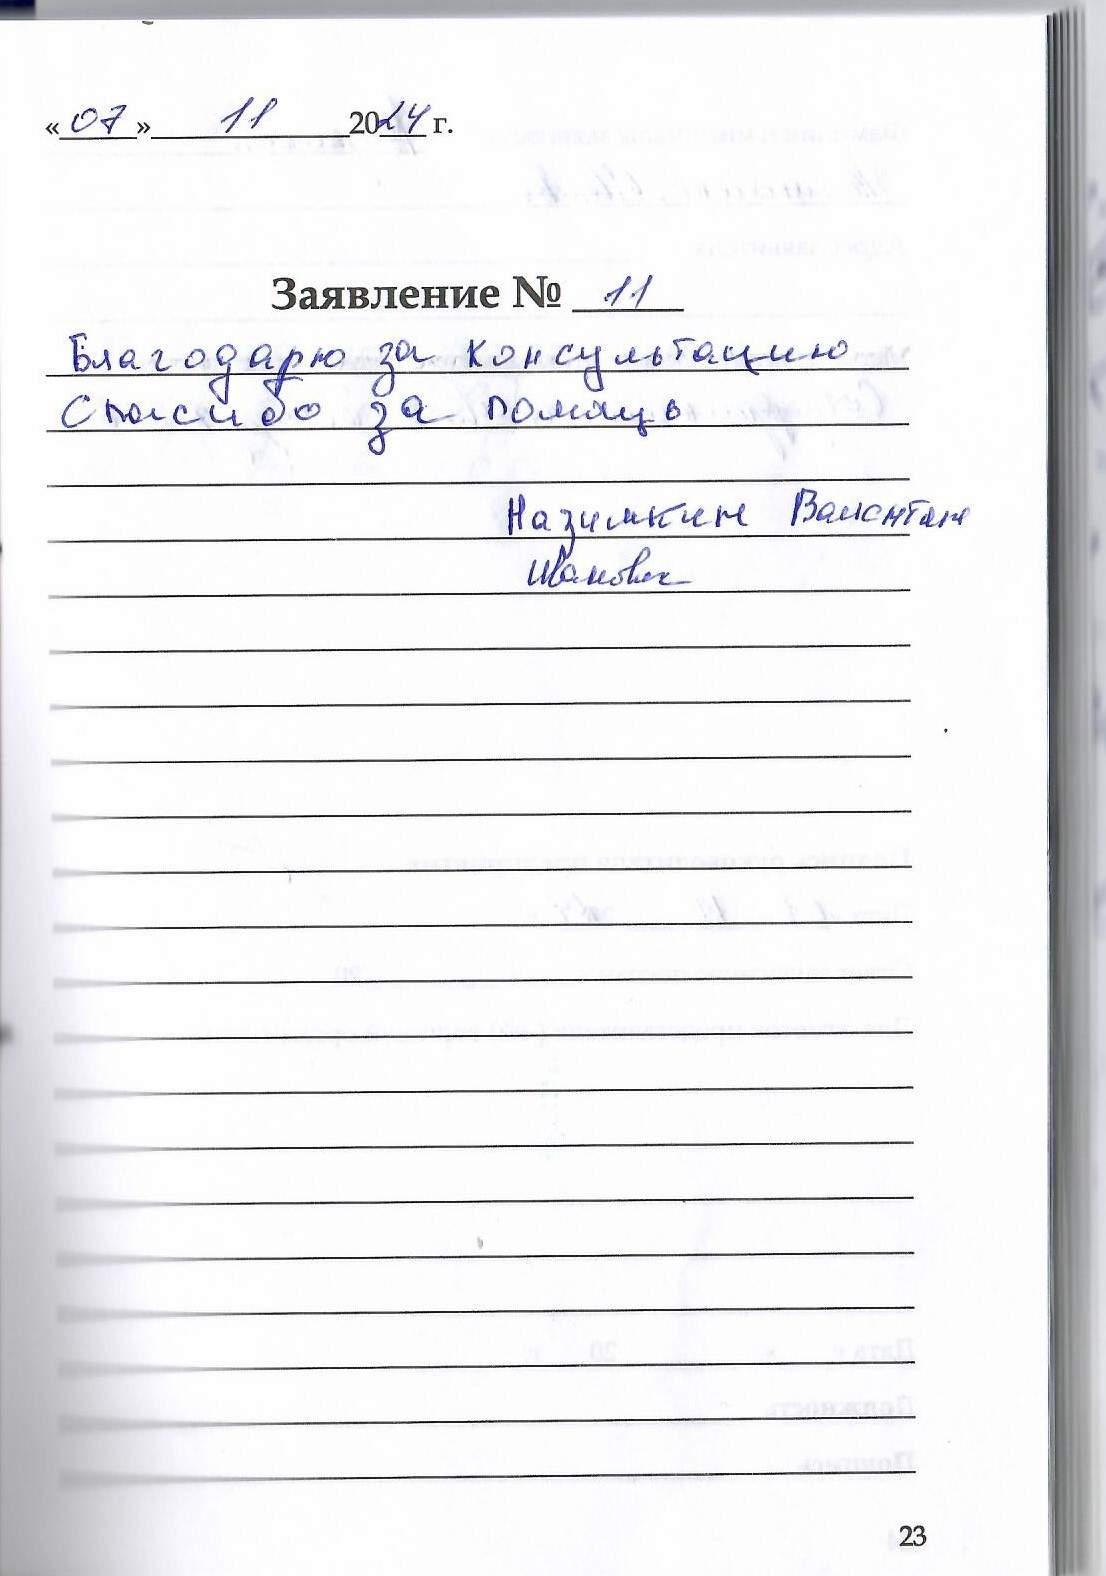 «07» 11 2024 г.
Заявление № 11
Благодарю за консультацию
Спасибо за помощь
Назимкин Валентин
Иванович
23